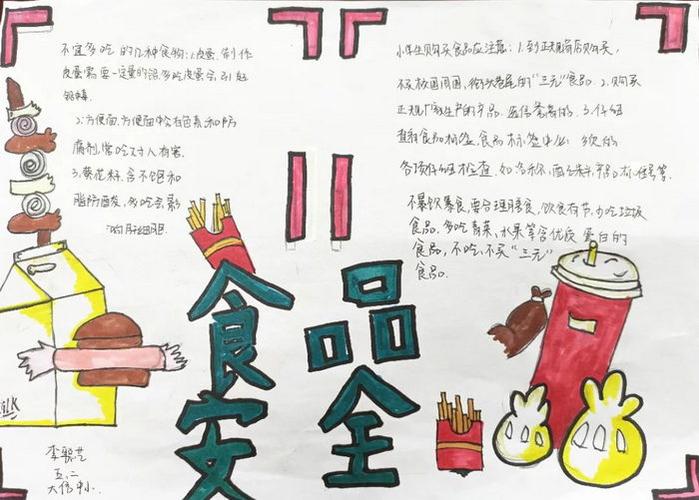 不宜多吃的几种食物:1.皮蛋.制作
皮蛋需要一定量的铅.多吃皮蛋会引起
铅中毒.
2.方便面.方便面中含有色素和防
腐剂,常吃对人有害.
3.葵花籽.含不饱和
脂肪酸,多吃会影
响肝细胞.
小学生购买食品应注意:1.到正规商店购买,
不买校园周围,街头巷尾的"三无"食品.2.购买
正规厂家生产的产品.
查看食品标签,食品标签中
各项
不暴饮暴食,要合理膳食,饮食有节,少吃垃圾
食品.多吃青菜,水果等含优质蛋白的
食品,不吃不买"三无"
食品.
食品
安全
五.二